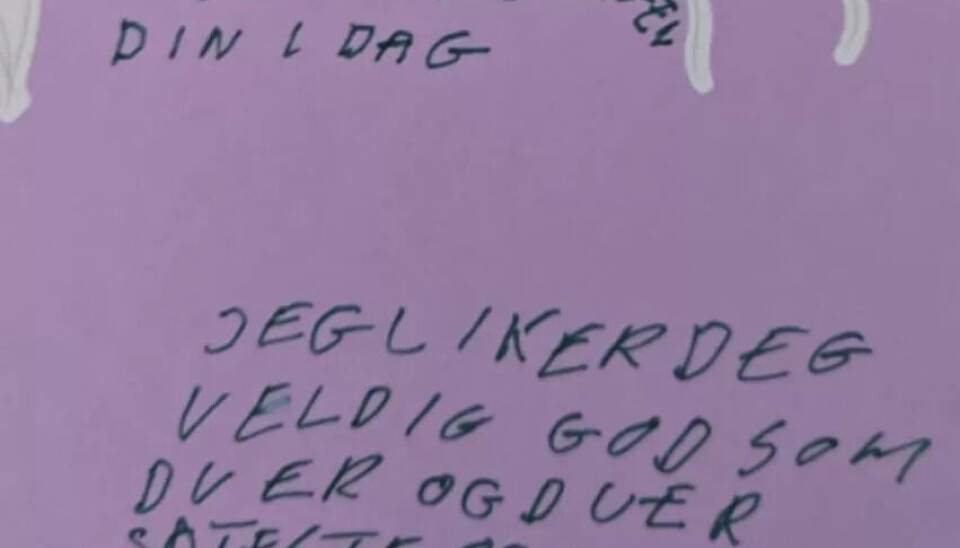 DIN I DAG
JEG LIKER DEG
VELDIG GOD SOM
DU ER OG DU ER